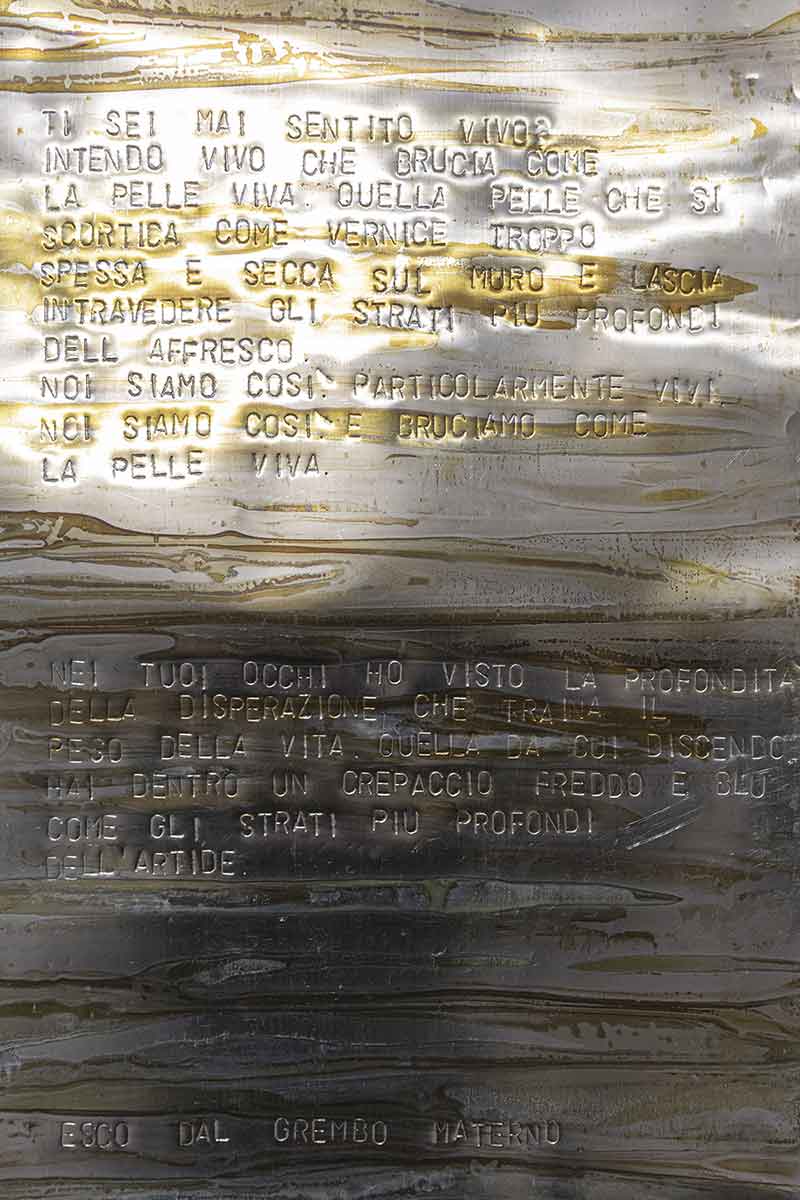 TI SEI MAI SENTITO VIVO?
INTENDO VIVO CHE BRUCIA COME
LA PELLE VIVA. QUELLA PELLE CHE SI
SCORTICA COME VERNICE TROPPO
SPESSA E SECCA SUL MURO E LASCIA
INTRAVEDERE GLI STRATI PIU PROFONDI
DELL AFFRESCO.
NOI SIAMO COSI. PARTICOLARMENTE VIVI.
NOI SIAMO COSI. E BRUCIAMO COME
LA PELLE VIVA.
NEI TUOI OCCHI HO VISTO LA PROFONDITA
DELLA DISPERAZIONE CHE TRAINA IL
PESO DELLA VITA. QUELLA DA CUI DISCENDO.
HAI DENTRO UN CREPACCIO FREDDO E BLU
COME GLI STRATI PIU PROFONDI
DELL'ARTIDE.
ESCO DAL GREMBO MATERNO